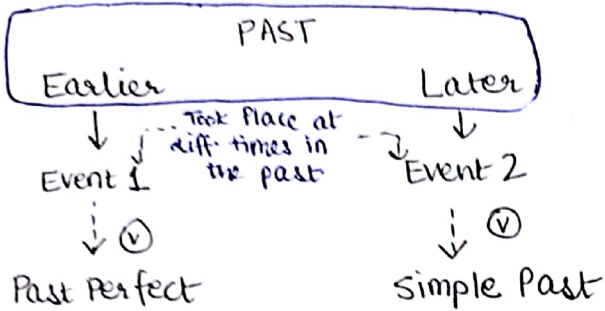 PAST
Earlier Later
Took Place at
diff. times in
the past
Event 1 Event 2
V V
Past Perfect Simple Past